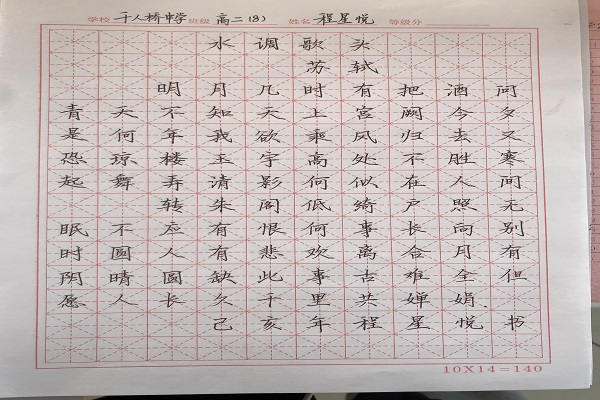 学校 千人桥中学 班级 高二(8) 姓名 程星悦 等级分
水调歌头
苏轼
明月几时有 把酒问
青天不知天上宫阙今夕
是何年我欲乘风归去又
恐琼楼玉宇高处不胜寒
起舞弄清影何似在人间
转朱阁低绮户照无
眠不应有恨何事长向别
时圆人有悲欢离合月有
阴晴圆缺此事古难全但
愿人长久千里共婵娟.
己亥年程星悦书
10X14=140